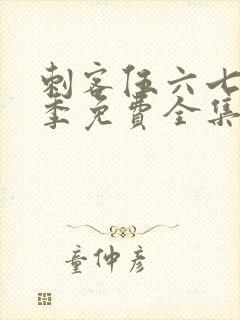 刺客伍六七
季免費全集
童仲彦